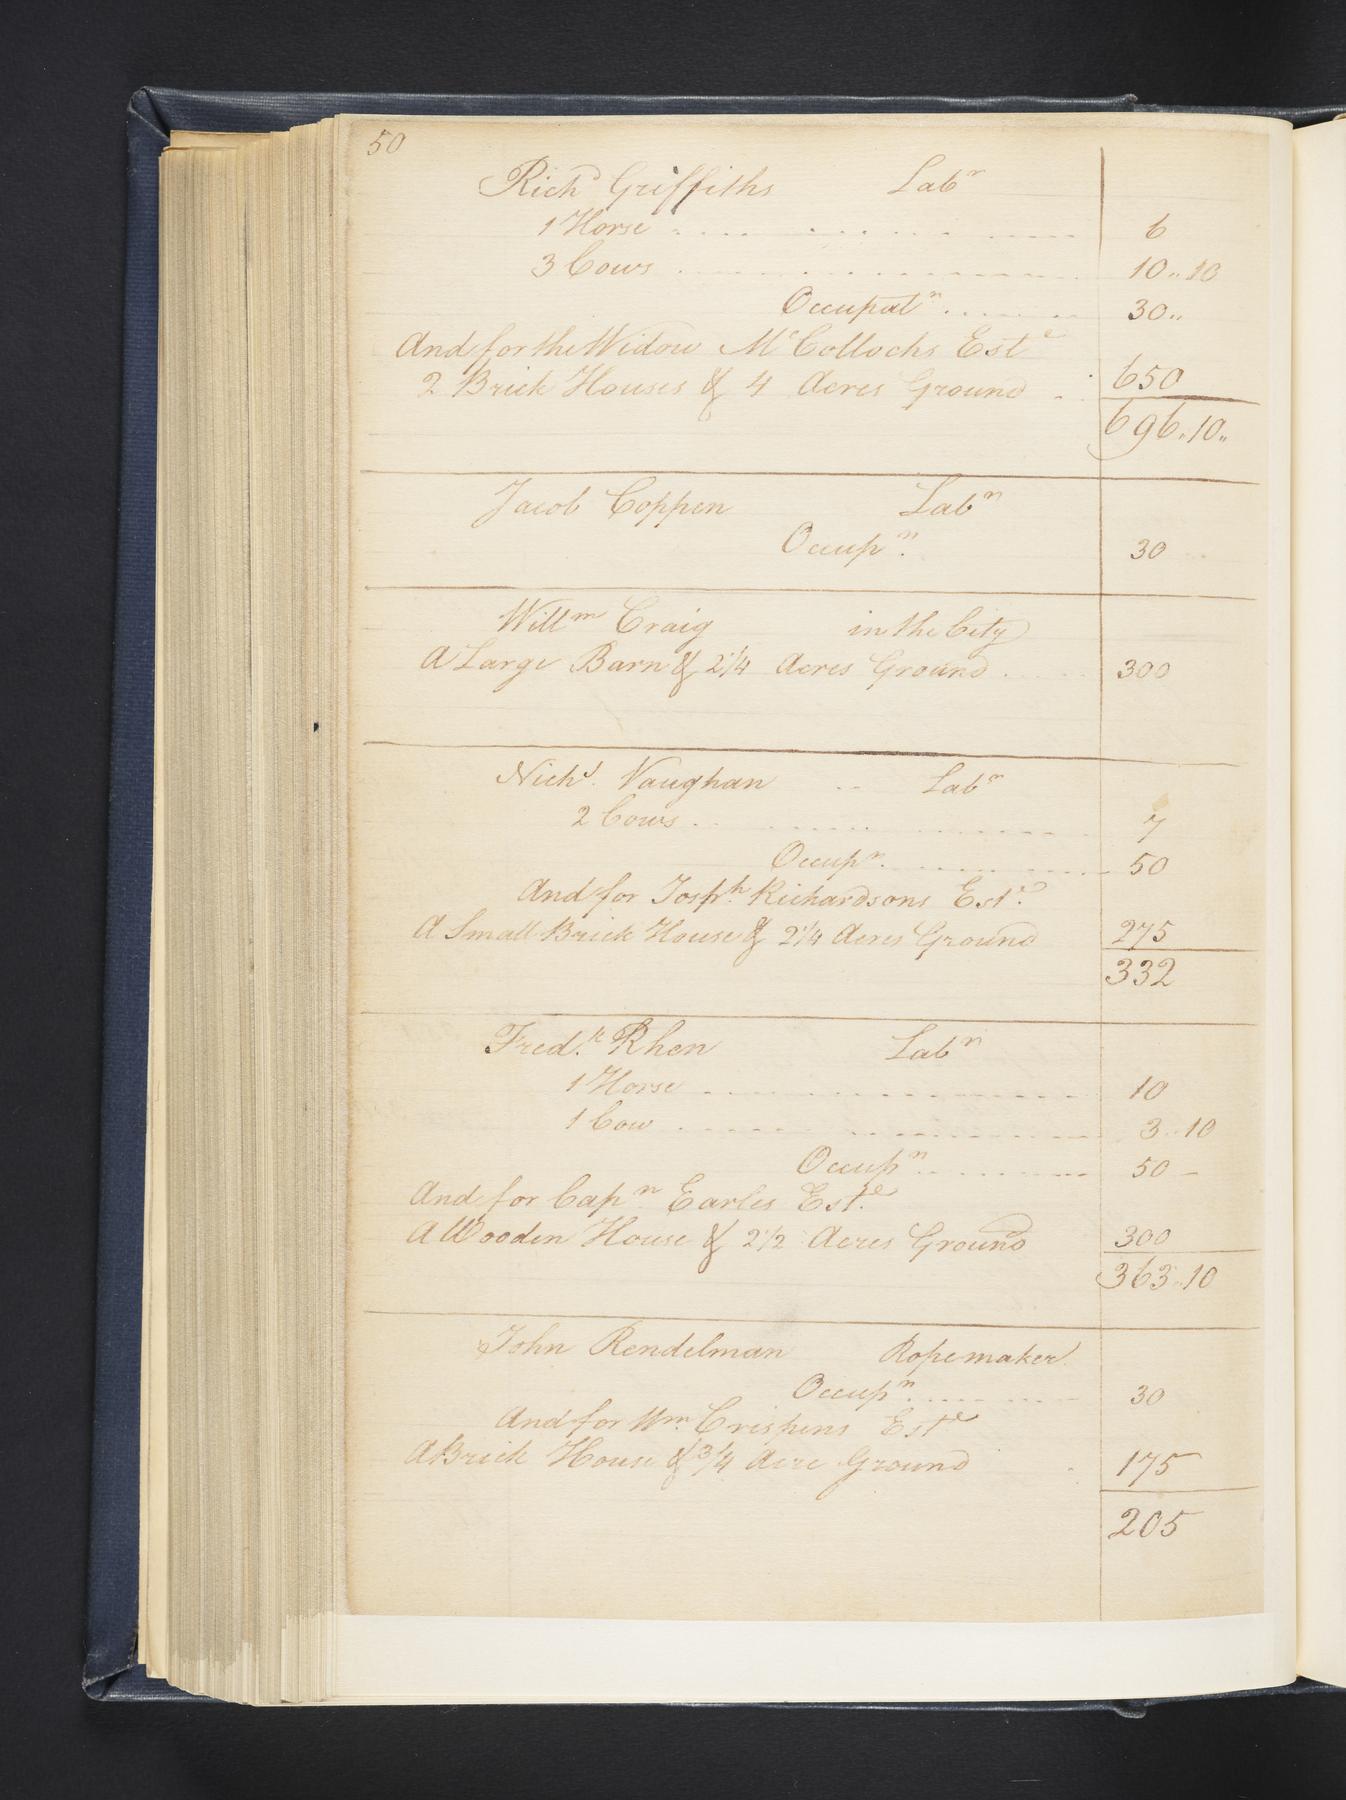 50
Richd Griffiths Labr
1 Horse 6
3 Cows 10..10
Occupatn 30..
And for the Widow McCollochs Este
2 Brick Houses & 4 Acres Ground 650
696..10..
Jacob Coppen Labr
Occupn. 30
Willm Craig in the City
A Large Barn & 2 1/4 Acres Ground 300
Nichs. Vaughan Labr
2 Cows 7
Occupn. 50
And for Josph. Richardsons Este.
A Small Brick House & 2 1/4 Acres Ground 275
332
Fred.k Rhen Labr
1 Horse 10
1 Cow 3..10
Occupn. 50 -
And for Capn. Earles Est.e
A Wooden House & 2 1/2 Acres Ground 300
363..10
John Rendelman Ropemaker
Occupn. 30
And for Wm. Crispins Este
A Brick House & 3/4 Acre Ground 175
205